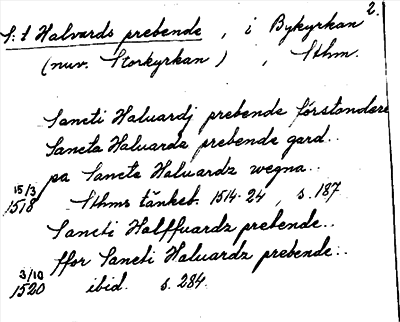 2.
S:t Halvards prebende, i Bykyrkan
(nuv. Storkyrkan), Sthm.
Sancti Haluardj prebende förstandare
Sancta Haluardz prebende gard..
pa Sancte Haluardz wegna..
15/3 1518 Sthms tänkeb. 1514-24, s. 187
Sancti Halffuardz prebende..
ffor Sancti Haluardz prebende..
3/10 1520 ibid. s. 284.